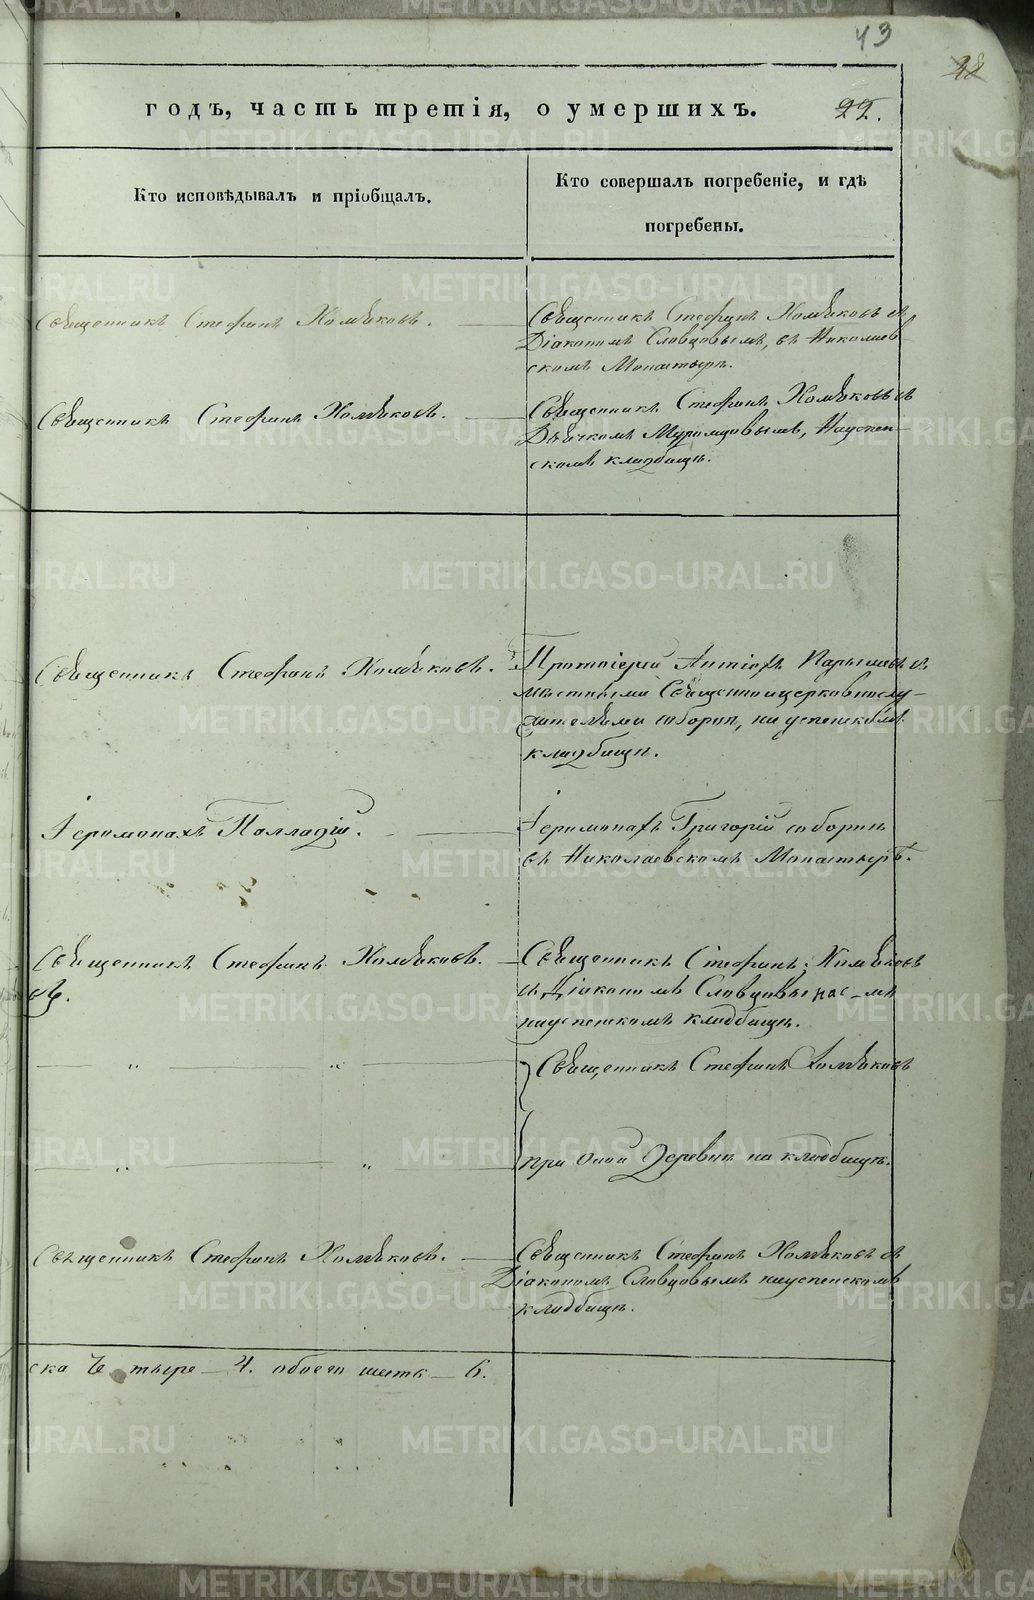 43
28
годъ, часть третія, о умершихъ.
22.
Кто исповѣдывалъ и пріобщалъ.
Кто совершалъ погребеніе, и гдѣ
погребены.
Священникъ Стефанъ Хомяковъ.
Священникъ Стефанъ Хомяковъ съ
Діакономъ Словцовымъ, въ Николаев-
скомъ Монастырѣ.
Священникъ Стефанъ Хомяковъ.
Священникъ Стефанъ Хомяковъ съ
Дьячкомъ Муромцовымъ, На успен-
скомъ кладбищѣ.
Священникъ Стефанъ Хомяковъ.
Протоіерей Антіохъ Парышевъ съ
мѣстными Священноицерковнослу-
жителями соборнѣ, на успенскомъ
кладбищѣ.
Іеромонахъ Палладій.
Іеромонахъ Григорій соборнѣ
въ Николаевскомъ Монастырѣ.
Священникъ Стефанъ Хомяковъ.
Священникъ Стефанъ Хомяковъ
съ Діакономъ Словцовымъ
на успенскомъ кладбищѣ.
Священникъ Стефанъ Хомяковъ
при оной Деревнѣ на кладбищѣ.
Священникъ Стефанъ Хомяковъ.
Священникъ Стефанъ Хомяковъ съ
Діакономъ Словцовымъ на успенскомъ
кладбищѣ.
ска Четыре — 4. обоего шесть — 6.
METRIKI.GASO-URAL.RU